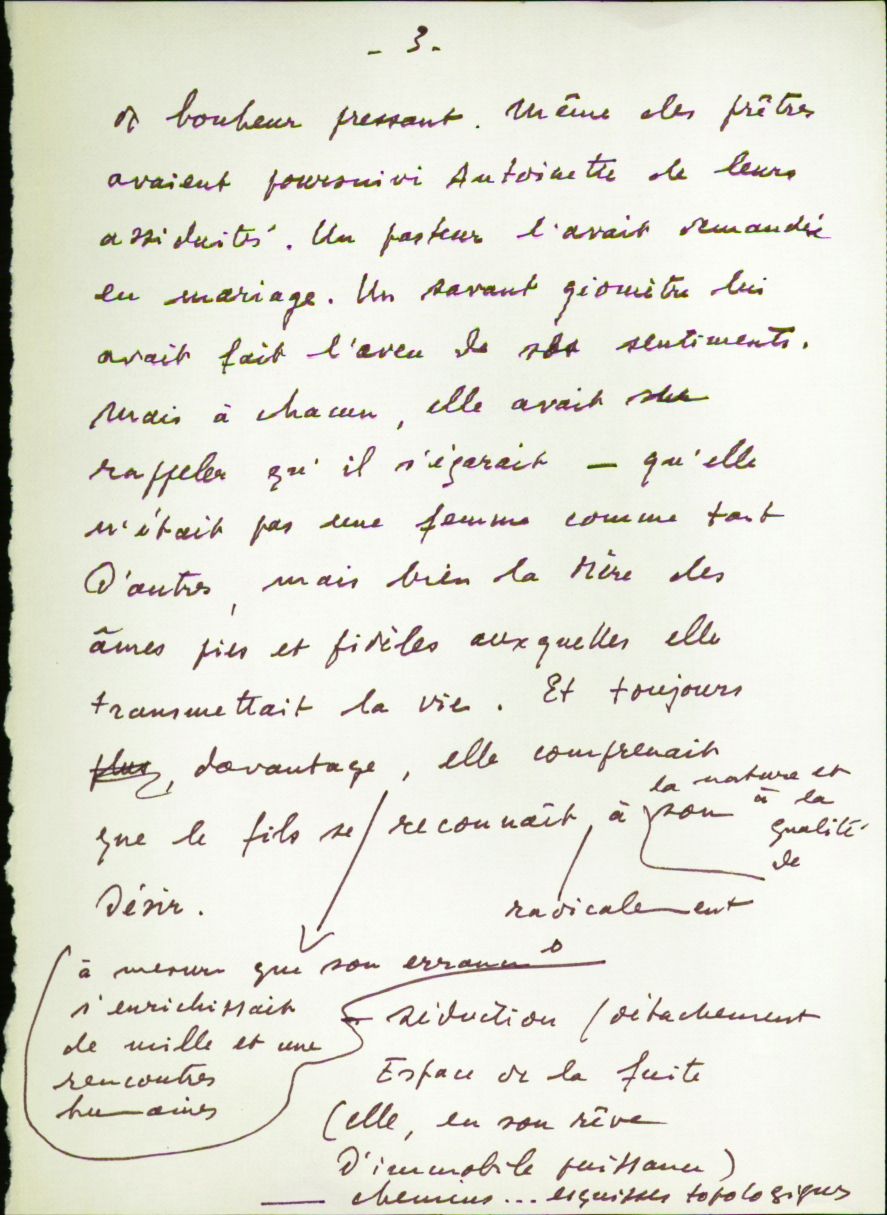 - 3 -
de bonheur pressant. Même des prêtres
avaient poursuivi Antoinette de leurs
assiduités. Un pasteur l'avait demandée
en mariage. Un savant géomètre lui
avait fait l'aveu de ses sentiments.
Mais à chacun, elle avait su
rappeler qu'il s'égarait — qu'elle
n'était pas une femme comme tant
d'autres, mais bien la Mère des
âmes pies et fidèles auxquelles elle
transmettait la vie. Et toujours
plus, davantage, elle comprenait
la nature et
que le fils se reconnaît, à son à la
qualité
de
Désir. radicalement
à mesure que son errance
s'enrichissait
de mille et une
rencontres
humaines
séduction / détachement
Espace de la fuite
(elle, en son rêve
d'immobile puissance)
— chemins... esquisses topologiques